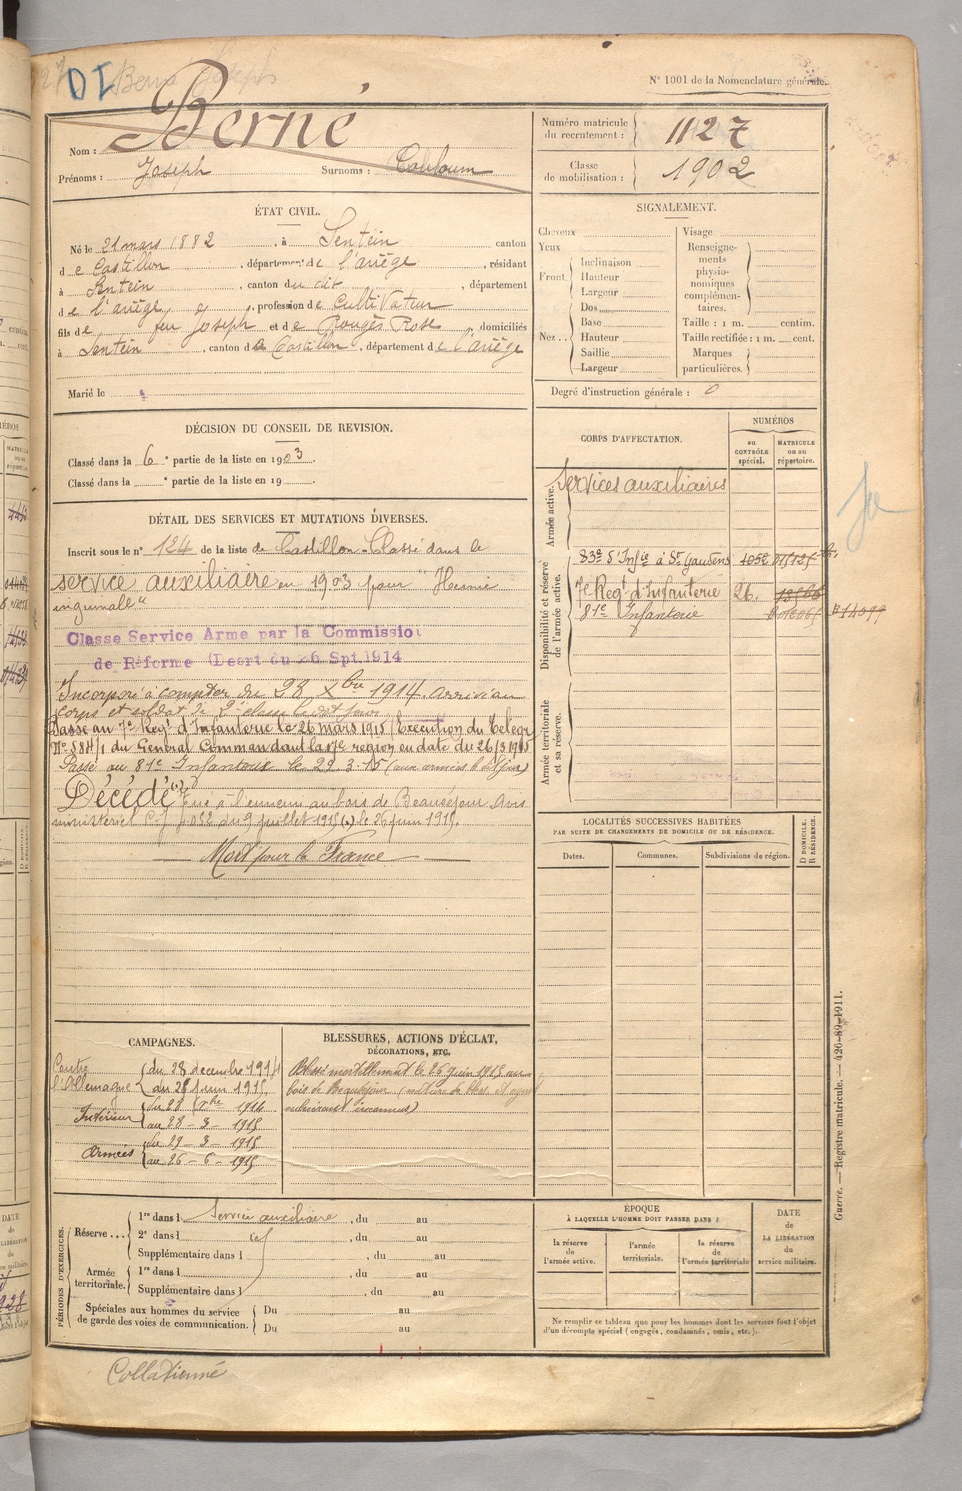 DI Berné Joseph
N° 1001 de la Nomenclature générale.
Nom : Berné
Prénoms : Joseph Surnoms : Couloum
Numéro matricule du recrutement : 1127
Classe de mobilisation : 1902
ÉTAT CIVIL.
Né le 21 mars 1882, à Sentein canton
de Castillon, département de l'ariège, résidant
à Sentein, canton du dit, département
de l'ariège, profession de Cultivateur
fils de feu Joseph et de Rougès Rose, domiciliés
à Sentein, canton de Castillon, département de l'ariège
Marié le
SIGNALEMENT.
Cheveux
Yeux
Front
Inclinaison
Hauteur
Largeur
Nez
Dos
Base
Hauteur
Saillie
Largeur
Visage
Renseignements physionomiques complémentaires.
Taille : 1 m. centim.
Taille rectifiée : 1 m. cent.
Marques particulières.
Degré d'instruction générale : 0
DÉCISION DU CONSEIL DE REVISION.
Classé dans la 6e partie de la liste en 1903.
Classé dans la e partie de la liste en 19
CORPS D'AFFECTATION.
NUMÉROS
au CONTRÔLE spécial.
MATRICULE ou au répertoire.
Armée active.
Services auxiliaires
Disponibilité et réserve de l'armée active.
83e d'Infie à St Gaudens
7e Regt d'Infanterie 26.
81e Infanterie
Armée territoriale et sa réserve.
DÉTAIL DES SERVICES ET MUTATIONS DIVERSES.
Inscrit sous le n° 124 de la liste de Castillon - Classé dans le
service auxiliaire en 1903 pour "Hernie
inguinale"
Classé Service Armé par la Commission
de Réforme (Décret du 26 Spt. 1914
Incorporé à compter du 28 Xbre 1914. arrivé au
corps et soldat de 2e classe le dit jour
Passé au 7e Regt d'Infanterie le 26 mars 1915 (Exécution du Télégr
N° 5884/1 du Général Commandant la 17e région en date du 26/3 1915
Passé au 81e Infanterie le 29.3.15 (aux armées le dit jour)
Décédé Tué à l'ennemi au bois de Beauséjour Avis
ministériel du 9 juillet 1915 le 26 juin 1915.
Mort pour la France
LOCALITÉS SUCCESSIVES HABITÉES
PAR SUITE DE CHANGEMENTS DE DOMICILE OU DE RÉSIDENCE.
Dates. Communes. Subdivisions de région.
D DOMICILE.
R RÉSIDENCE.
CAMPAGNES.
Contre l'Allemagne
du 28 décembre 1914
au 26 juin 1915
Intérieur
du 28 Xbre 1914
au 28 - 3 - 1915
Armées
du 29 - 3 - 1915
au 26 - 6 - 1915
BLESSURES, ACTIONS D'ÉCLAT,
DÉCORATIONS, ETC.
Blessé mortellement le 26 juin 1915 au
bois de Beauséjour (nature de bless. et agent
vulnérant inconnus)
PÉRIODES D'EXERCICES.
Réserve
1re dans l Service auxiliaire, du au
2e dans l, du au
Supplémentaire dans l, du au
Armée territoriale.
1re dans l, du au
Supplémentaire dans l, du au
Spéciales aux hommes du service de garde des voies de communication.
Du au
Du au
ÉPOQUE
À LAQUELLE L'HOMME DOIT PASSER DANS :
la réserve de l'armée active.
l'armée territoriale.
la réserve de l'armée territoriale
DATE de LA LIBÉRATION du service militaire.
Ne remplir ce tableau que pour les hommes dont les services font l'objet
d'un décompte spécial (engagés, condamnés, omis, etc.).
Guerre. — Registre matricule. — 426-89-1911.
Collationné